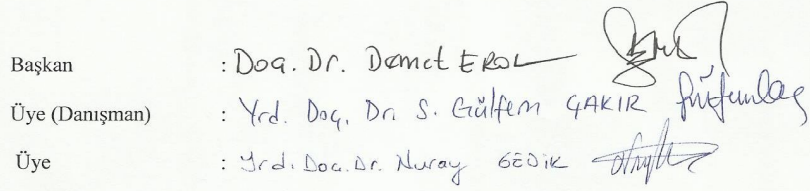 Başkan : Doç. Dr. Demet EROL
Üye (Danışman) : Yrd. Doç. Dr. S. Gülfem ÇAKIR
Üye : Yrd. Doç. Dr. Nuray GEDİK